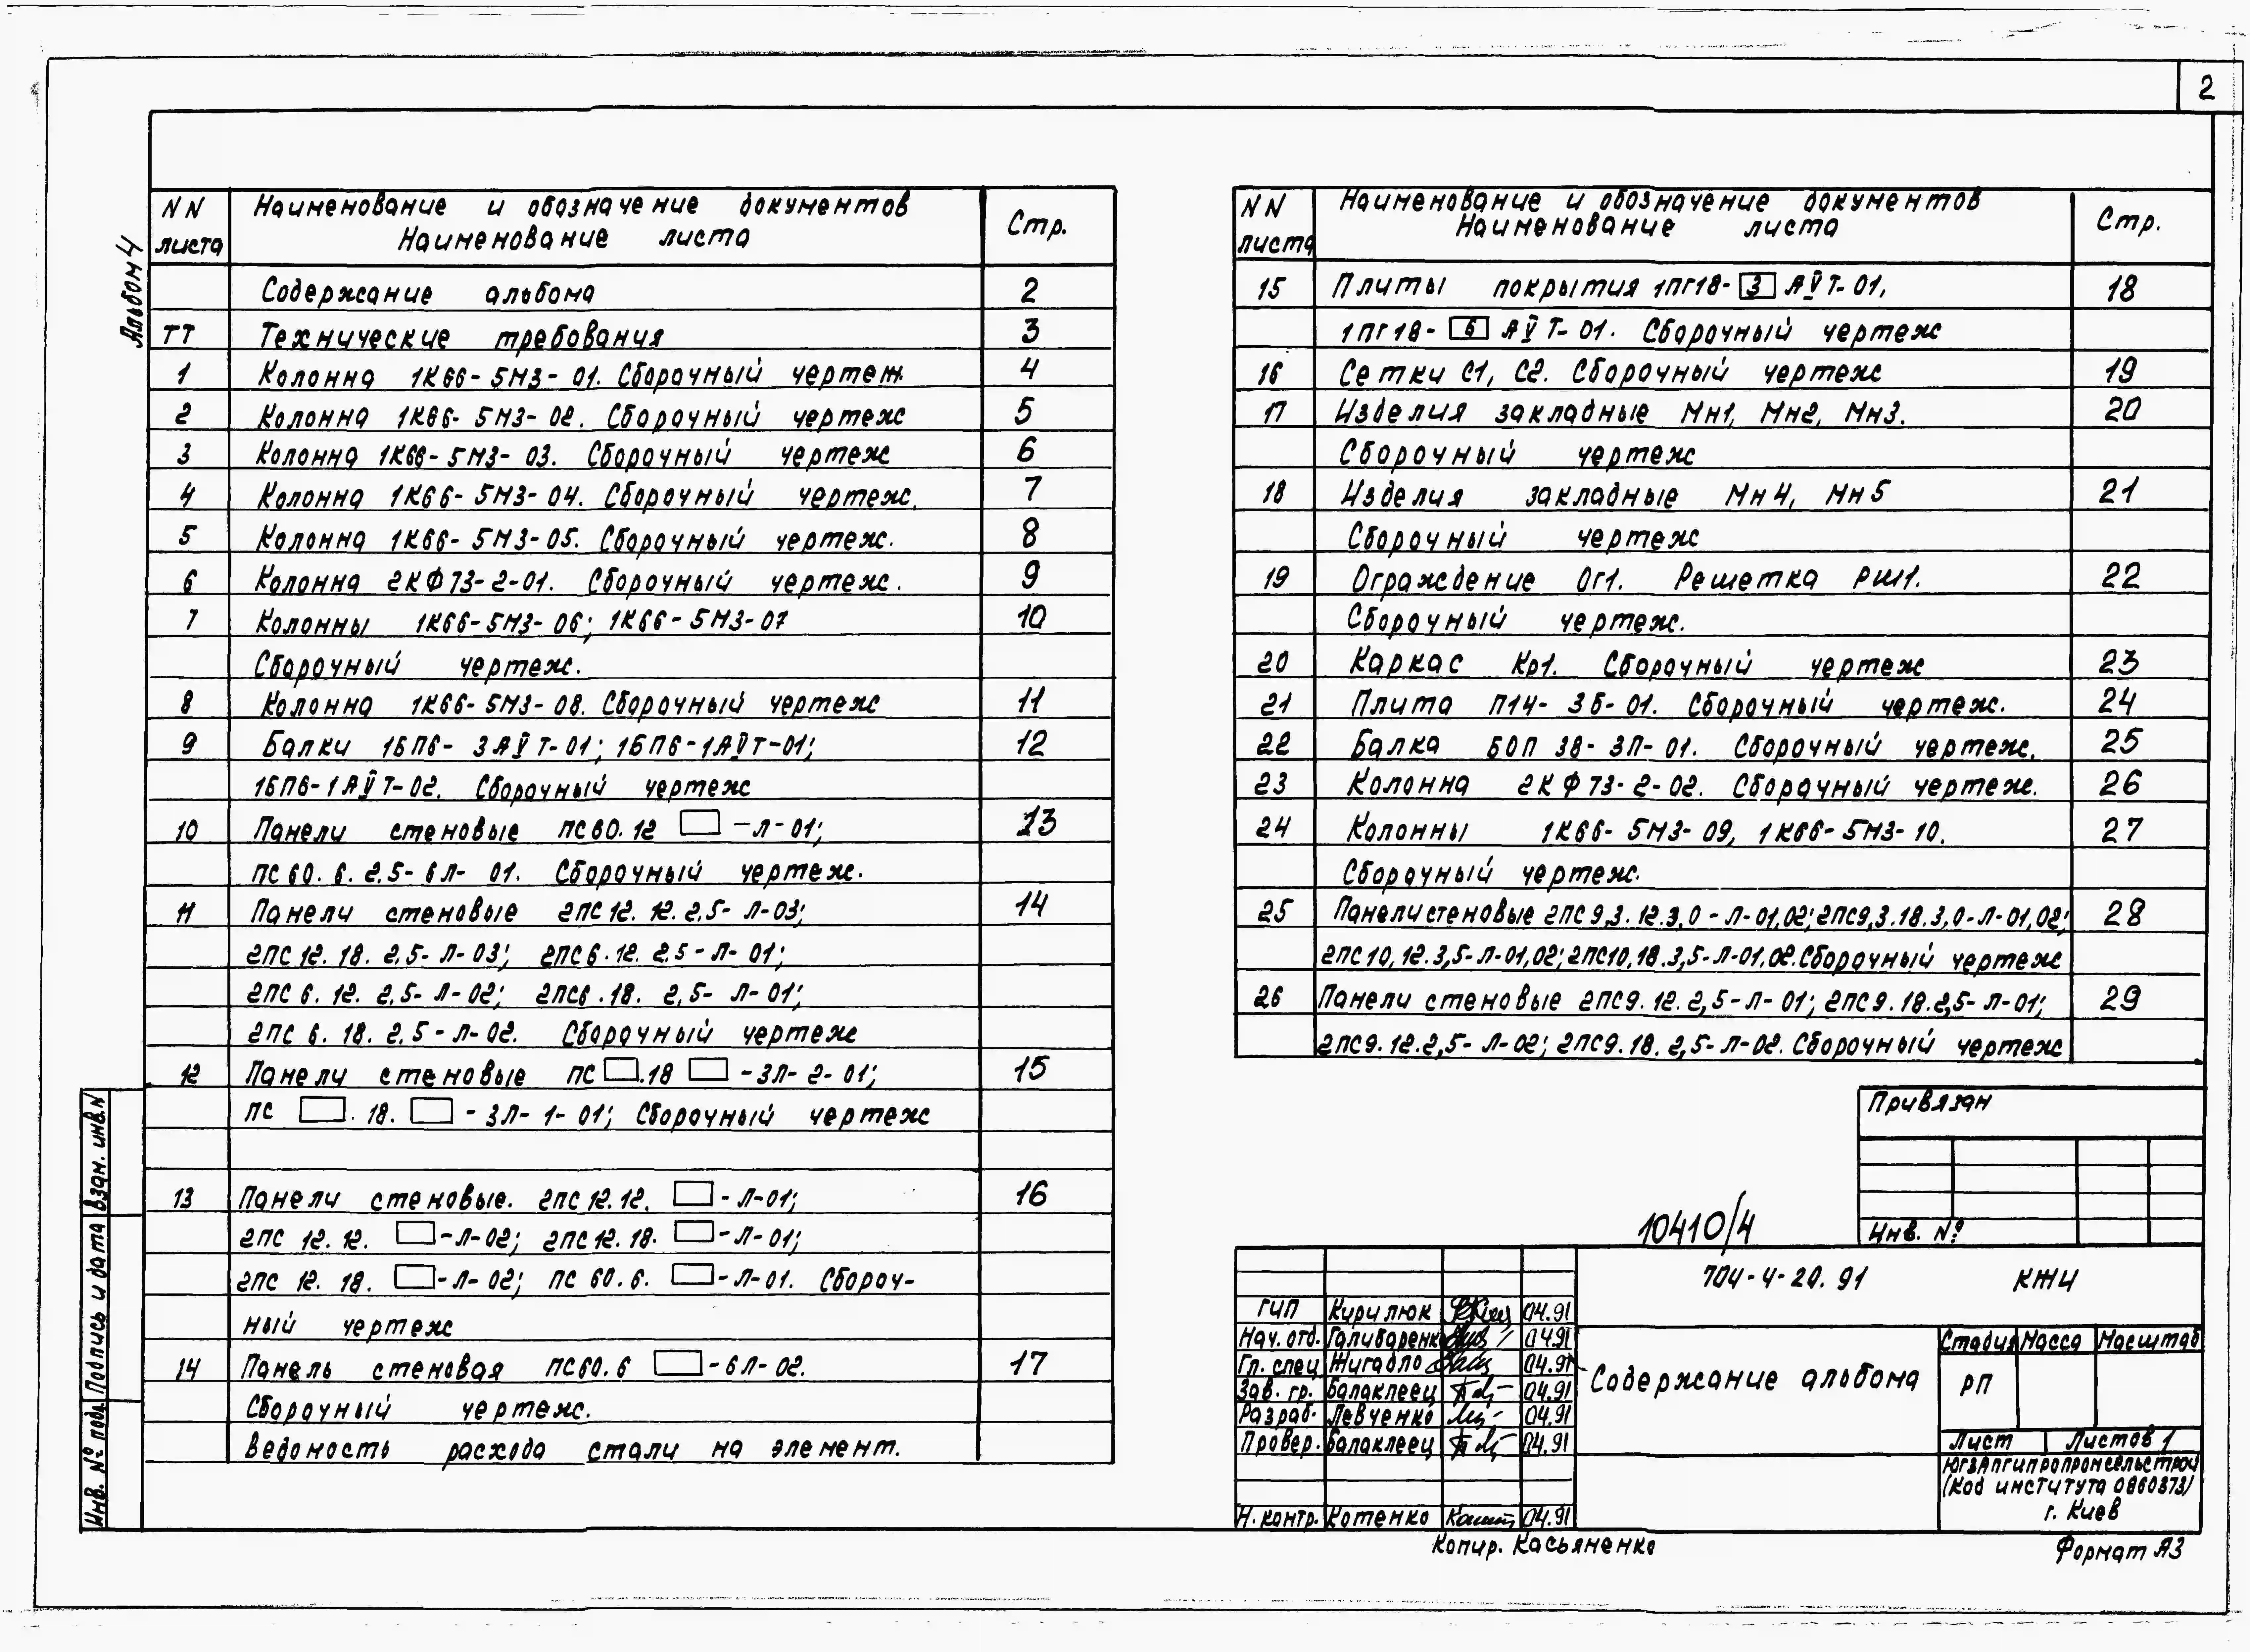 2
Альбом 4
NN листа
Наименование и обозначение документов
Наименование листа
Стр.
Содержание альбома 2
ТТ Технические требования 3
1 Колонна 1К66-5М3-01. Сборочный чертеж. 4
2 Колонна 1К66-5М3-02. Сборочный чертеж 5
3 Колонна 1К66-5М3-03. Сборочный чертеж 6
4 Колонна 1К66-5М3-04. Сборочный чертеж. 7
5 Колонна 1К66-5М3-05. Сборочный чертеж. 8
6 Колонна 2КФ73-2-01. Сборочный чертеж. 9
7 Колонны 1К66-5М3-06; 1К66-5М3-07 10
Сборочный чертеж.
8 Колонна 1К66-5М3-08. Сборочный чертеж 11
9 Балки 1БП6-3АⅤТ-01; 1БП6-1АⅤТ-01; 12
1БП6-1АⅤТ-02. Сборочный чертеж
10 Панели стеновые ПС60.12 □ -Л-01; 13
ПС60.6.2,5-6Л-01. Сборочный чертеж.
11 Панели стеновые 2ПС12.12.2,5-Л-03; 14
2ПС12.18.2,5-Л-03; 2ПС6.12.2,5-Л-01;
2ПС6.12.2,5-Л-02; 2ПС6.18.2,5-Л-01;
2ПС6.18.2,5-Л-02. Сборочный чертеж
12 Панели стеновые ПС □.18 □ -3Л-2-01; 15
ПС □.18. □ -3Л-1-01; Сборочный чертеж
13 Панели стеновые. 2ПС12.12. □ -Л-01; 16
2ПС 12.12. □ -Л-02; 2ПС12.18. □ -Л-01;
2ПС 12.18. □ -Л-02; ПС 60.6. □ -Л-01. Сбороч-
ный чертеж
14 Панель стеновая ПС60.6 □ -6Л-02. 17
Сборочный чертеж.
Ведомость расхода стали на элемент.
NN листа
Наименование и обозначение документов
Наименование листа
Стр.
15 Плиты покрытия 1ПГ18- 3 АⅤТ-01, 18
1ПГ18- 6 АⅤТ-01. Сборочный чертеж
16 Сетки С1, С2. Сборочный чертеж 19
17 Изделия закладные Мн1, Мн2, Мн3. 20
Сборочный чертеж
18 Изделия закладные Мн4, Мн5 21
Сборочный чертеж
19 Ограждение Ог1. Решетка РШ1. 22
Сборочный чертеж.
20 Каркас Кр1. Сборочный чертеж 23
21 Плита П14-3Б-01. Сборочный чертеж. 24
22 Балка БОП 38-3П-01. Сборочный чертеж. 25
23 Колонна 2КФ73-2-02. Сборочный чертеж. 26
24 Колонны 1К66-5М3-09, 1К66-5М3-10. 27
Сборочный чертеж.
25 Панели стеновые 2ПС9,3.12.3,0-Л-01,02; 2ПС9,3.18.3,0-Л-01,02; 28
2ПС10,12.3,5-Л-01,02; 2ПС10,18.3,5-Л-01,02. Сборочный чертеж
26 Панели стеновые 2ПС9.12.2,5-Л-01; 2ПС9.18.2,5-Л-01; 29
2ПС9.12.2,5-Л-02; 2ПС9.18.2,5-Л-02. Сборочный чертеж
Привязан
Инв. №
10410/4
704-4-20.91 КЖИ
ГИП Кирилюк 04.91
Нач. отд. Галибаренко 04.91
Гл. спец Жигадло 04.91
Зав. гр. Балаклеец 04.91
Разраб. Левченко 04.91
Провер. Балаклеец 04.91
Н. контр. Котенко 04.91
Содержание альбома
Стадия Масса Масштаб
РП
Лист Листов 1
Югзапгипропромсельстрой
(Код института 0860373)
г. Киев
Копир. Касьяненко
Формат А3
Взам. инв. N
Подпись и дата
Инв. № подл.